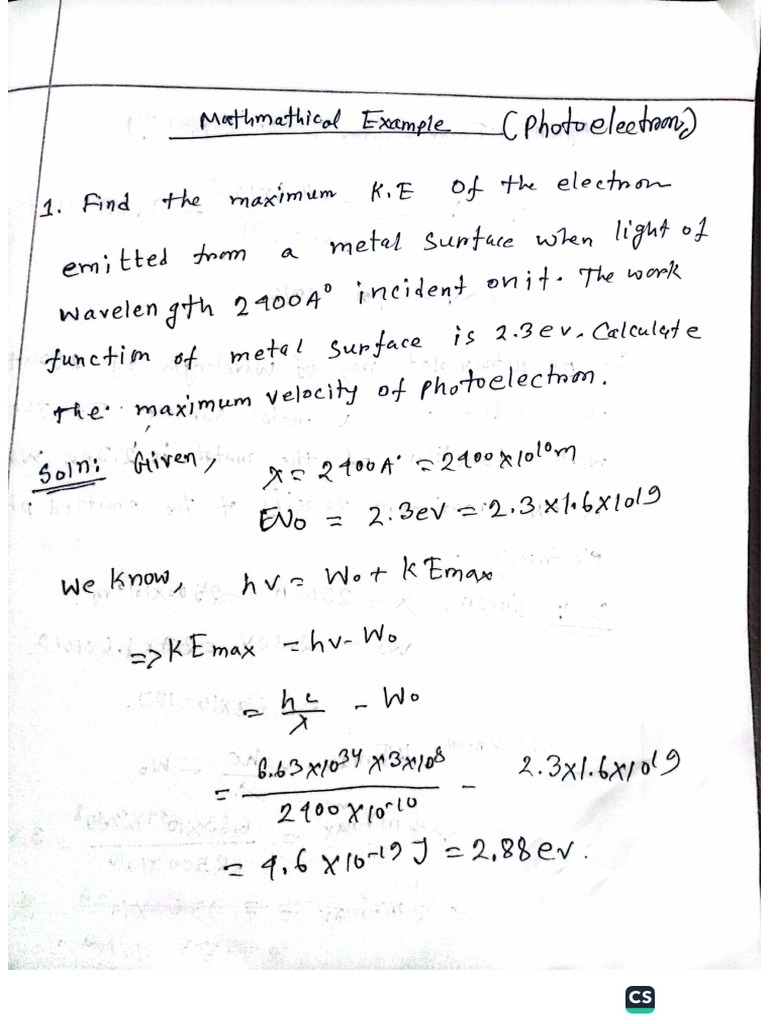 Mathmathical Example (Photoelectron)
1. Find the maximum K.E of the electron
emitted from a metal surface when light of
wavelength 2400A° incident on it. The work
function of metal surface is 2.3 ev. Calculate
the maximum velocity of photoelectron.
Soln: Given, λ = 2400A° = 2400×10^10 m
EWo = 2.3ev = 2.3×1.6×10^19
We know, hν = Wo + KEmax
=> KEmax = hν - Wo
= hc/λ - Wo
= 6.63×10^34 × 3×10^8 / 2400×10^-10 - 2.3×1.6×10^19
= 4.6 × 10^-19 J = 2.88 ev.
CS